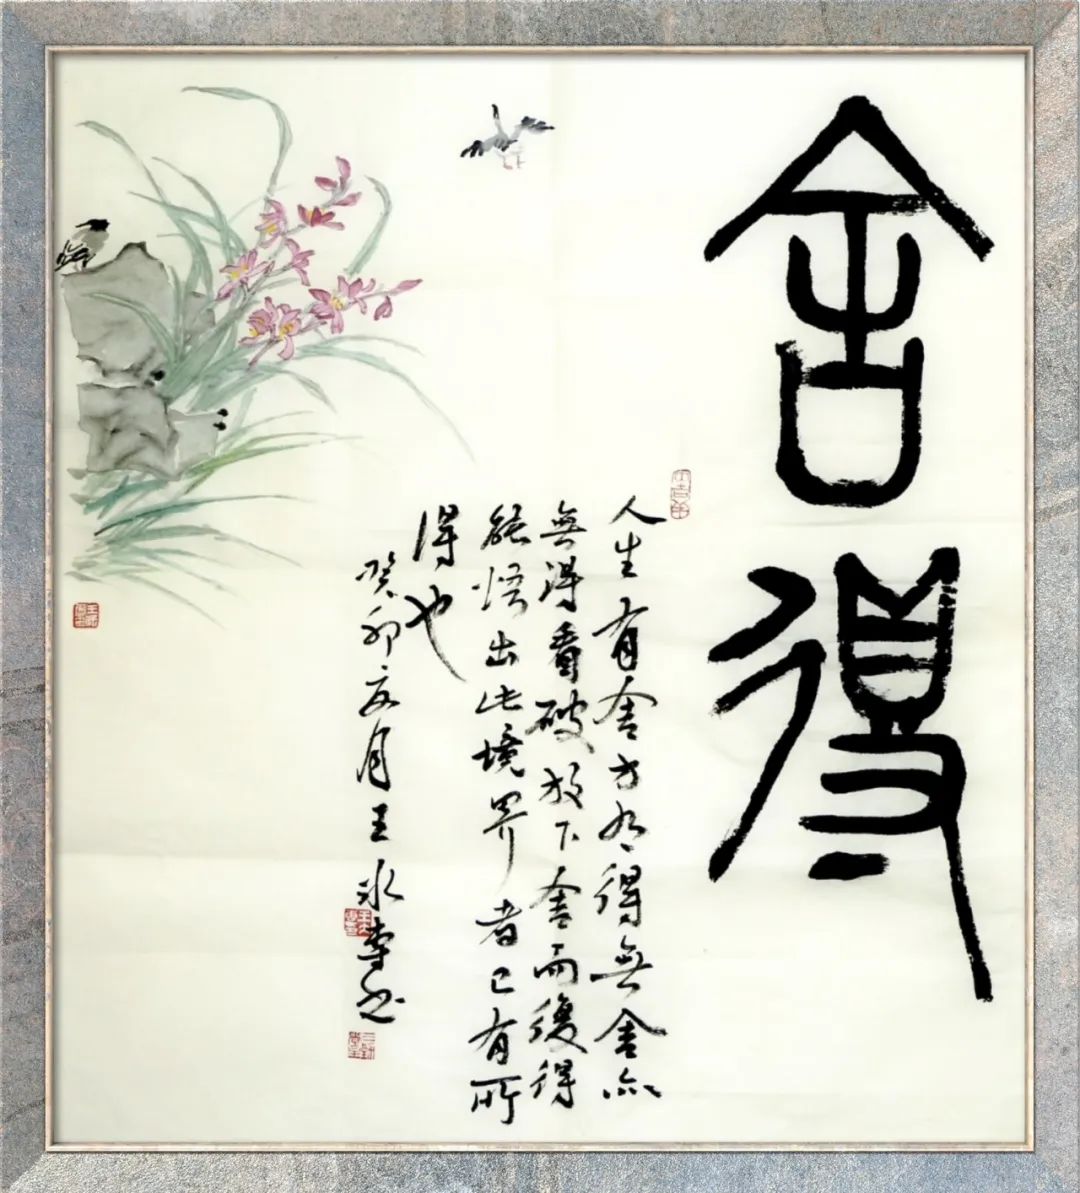 舍得
人生有舍方有得無舍亦
無得看破放下舍而後得
能悟出此境界者已有所
得也
癸卯 月王